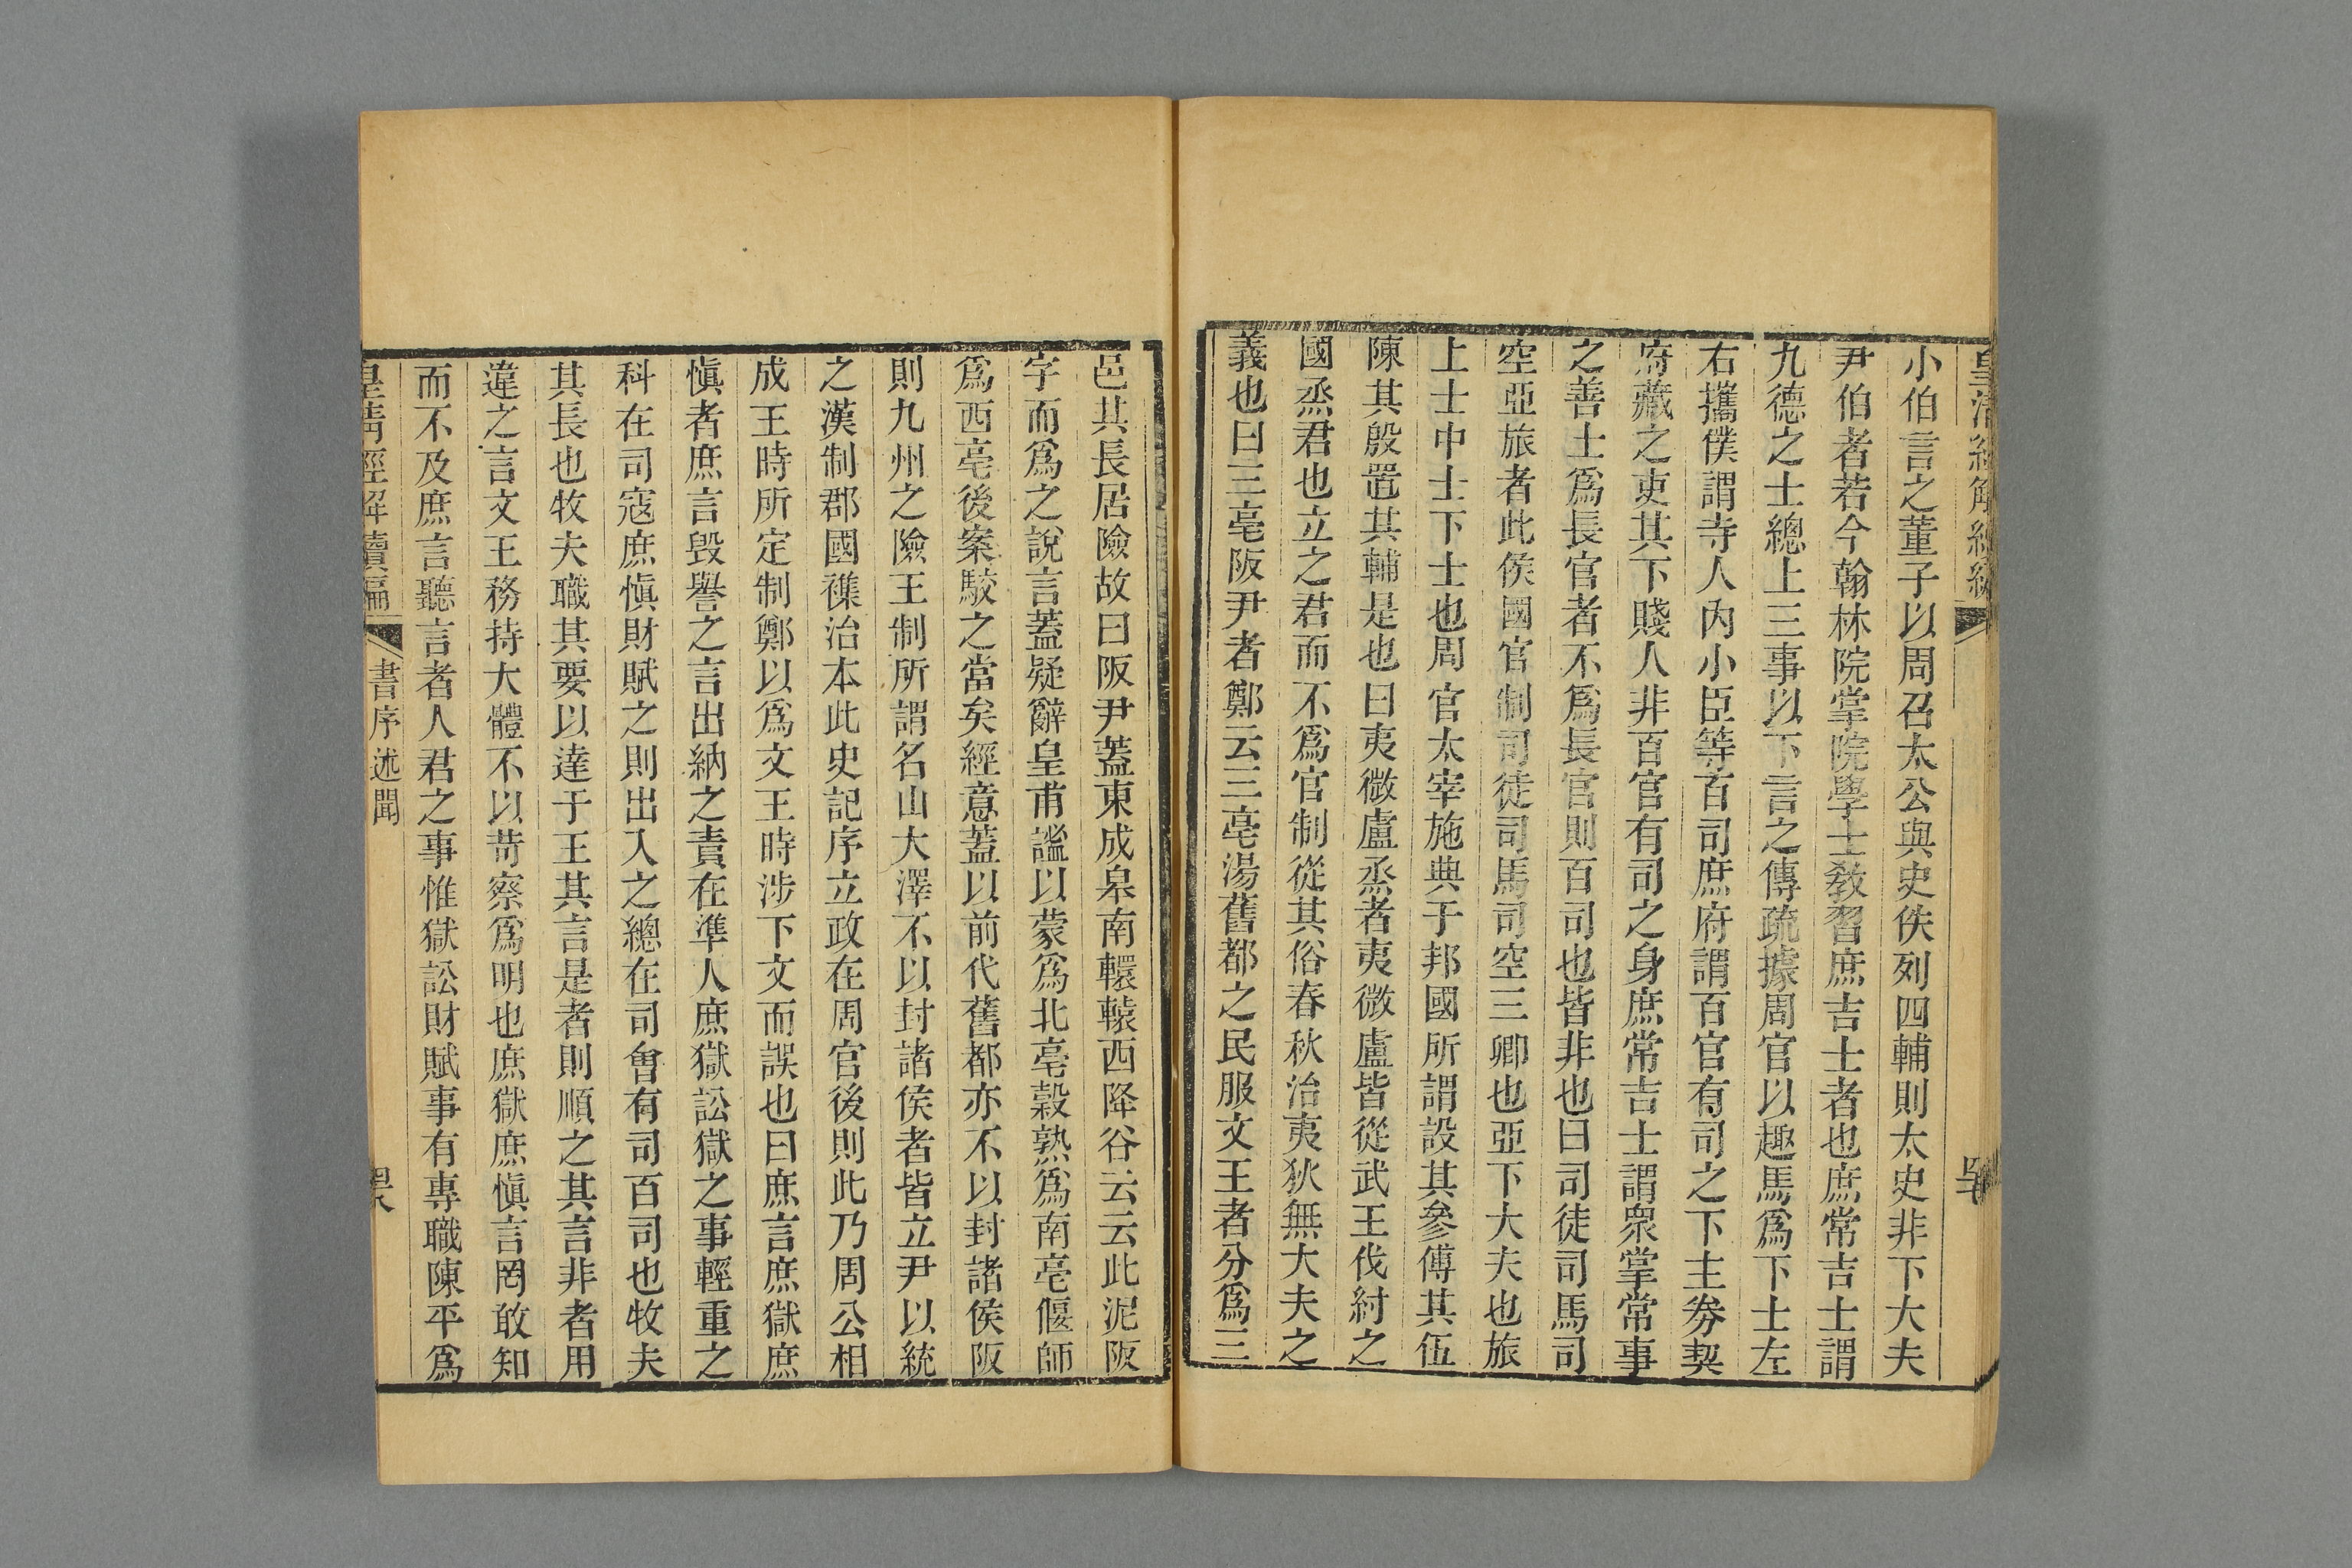 小伯言之董子以周召太公與史佚列四輔則太史非下大夫
尹伯者若今翰林院掌院學士教習庶吉士者也庶常吉士謂
九德之士總上三事以下言之傳疏據周官以趣馬爲下士左
右攜僕謂寺人內小臣等百司庶府謂百官有司之下主券契
府藏之吏其下賤人非百官有司之身庶常吉士謂衆掌常事
之善士爲長官者不爲長官則百司也皆非也曰司徒司馬司
空亞旅者此侯國官制司徒司馬司空三卿也亞下大夫也旅
上士中士下士也周官太宰施典于邦國所謂設其參傅其伍
陳其殷置其輔是也曰夷微盧烝者夷微盧皆從武王伐紂之
國烝君也立之君而不爲官制從其俗春秋治夷狄無大夫之
義也曰三亳阪尹者鄭云三亳湯舊都之民服文王者分爲三
邑其長居險故曰阪尹蓋東成皋南轘轅西降谷云云此泥阪
字而爲之說言蓋疑辭皇甫謐以蒙爲北亳穀熟爲南亳偃師
爲西亳後案駁之當矣經意蓋以前代舊都亦不以封諸侯阪
則九州之險王制所謂名山大澤不以封諸侯者皆立尹以統
之漢制郡國襍治本此史記序立政在周官後則此乃周公相
成王時所定制鄭以爲文王時涉下文而誤也曰庶言庶獄庶
愼者庶言毀譽之言出納之責在準人庶獄訟獄之事輕重之
科在司寇庶愼財賦之則出入之總在司會有司百司也牧夫
其長也牧夫職其要以達于王其言是者則順之其言非者用
違之言文王務持大體不以苛察爲明也庶獄庶愼言罔敢知
而不及庶言聽言者人君之事惟獄訟財賦事有專職陳平爲
皇淸經解續編
書序述聞